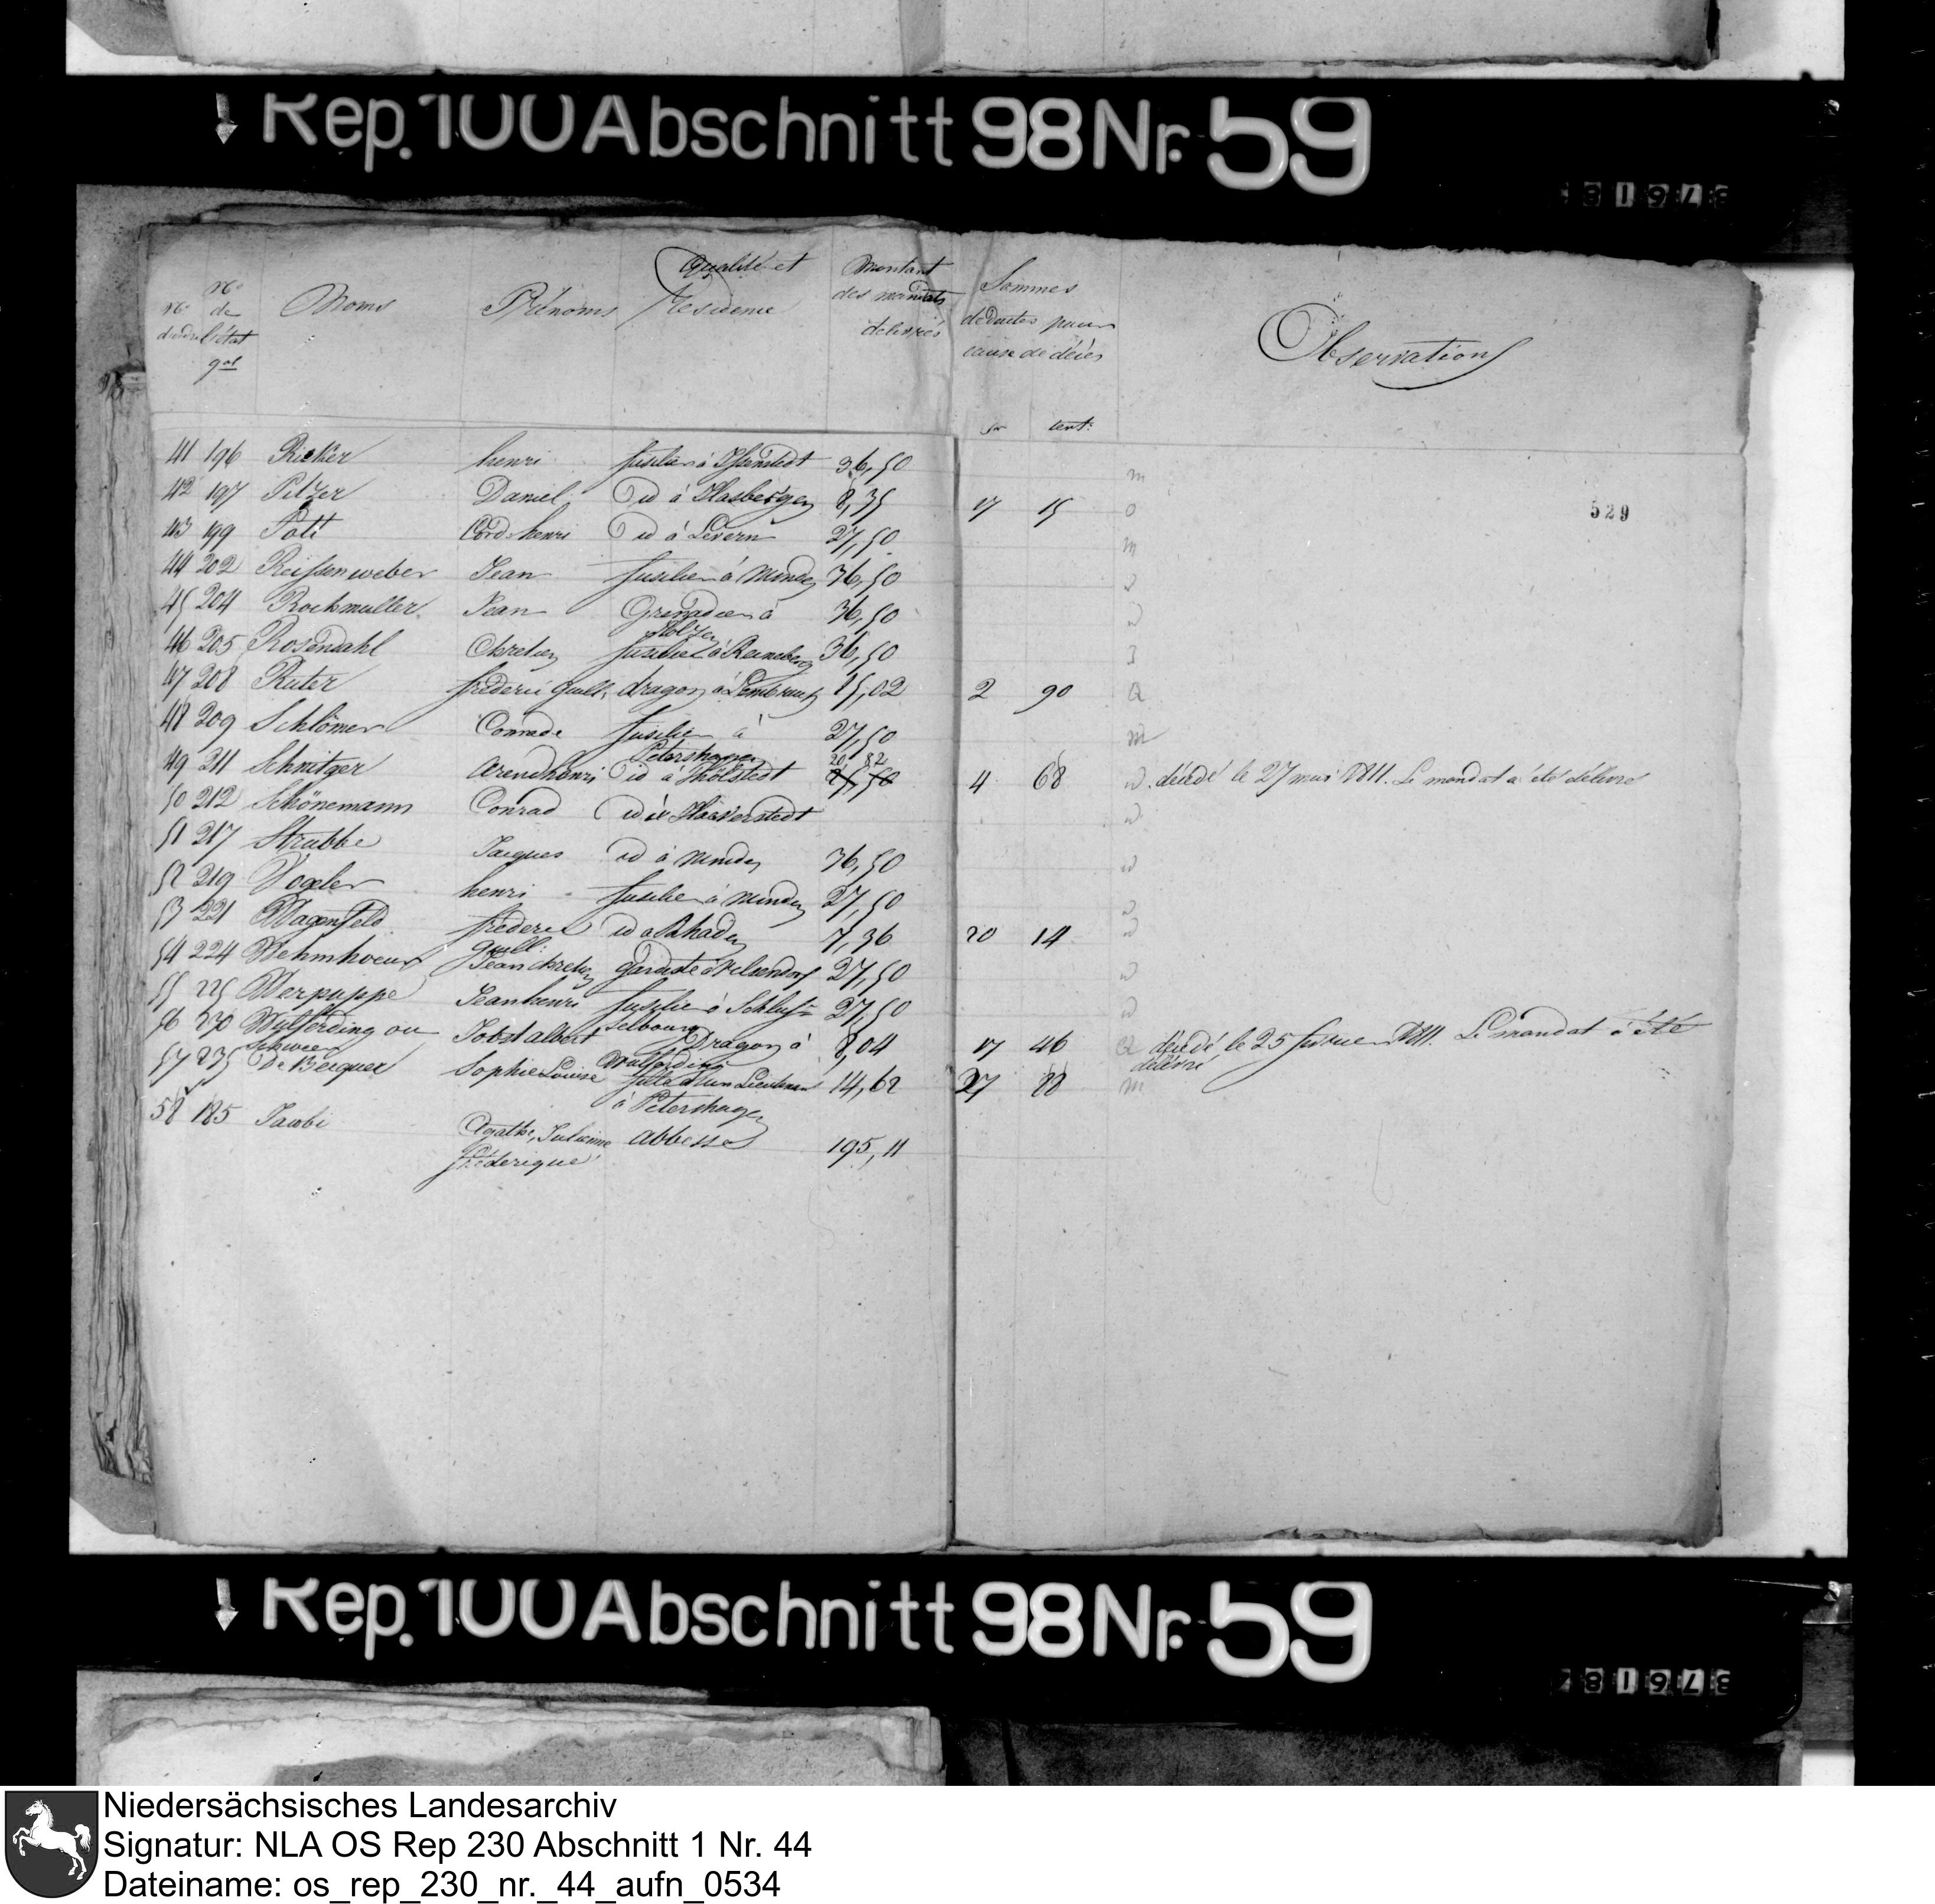 Rep. 100 Abschnitt 98 Nr. 59
No d'ordre No de l'état gal Noms Prénoms Qualité et Residence Montant des mandats delivrés Sommes deduites pour cause de décès Observations
fr cent:
529
41 196 Ricker henri fusilier à 36,50
42 197 Pelzer Daniel id à Hasbergen 8,35 17 15
43 199 Pott Cord henri id à Levern 27,50
44 202 Reissenweber Jean fusilier à Minden 36,50
45 204 Rockmuller Jean Grenadier à Holzen 36,50
46 205 Rosendahl Chretien fusilier à 36,50
47 208 Ruter frederic guill: dragon à 15,02 2 90
48 209 Schlömer Conrade fusilier à Petershagen 27,50
49 211 Schnitger Arend henri id à 20,82 4 68 décédé le 27 mai 1811. Le mandat a été délivré
50 212 Schönemann Conrad id à
51 217 Strubbe Jacques id à Minden 36,50
52 219 Vogeler henri fusilier à Minden 27,50
53 221 Wagenfeld frederic guill: id à Rhaden 7,36 20 14
54 224 Jean chretien gardiste à 27,50
55 225 Werpuppe Jean henri fusilier à Schlusselbourg 27,50
56 230 Wulferding ou Schween Jobst albert Dragon à 8,04 17 46 décédé le 25 1811. Le mandat a été délivré
57 235 De Becquer Sophie Louise fille d'un Lieutenant à Petershagen 14,62 27 88
58 185 Jacobi Agathe, Julienne frederique Abbesse 195,11
Rep. 100 Abschnitt 98 Nr. 59
Niedersächsisches Landesarchiv
Signatur: NLA OS Rep 230 Abschnitt 1 Nr. 44
Dateiname: os_rep_230_nr._44_aufn_0534